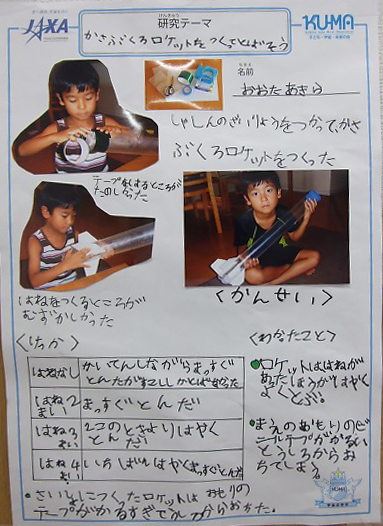 JAXA
KU-MA
けんきゅう
研究テーマ
かさぶくろロケットをつくってとばそう
なまえ
名前
おおた あきら
しゃしんのざいりょうをつかってかさ
ぶくろロケットをつくった
テープをはるところが
たのしかった
はねをつくるところが
むずかしかった
<かんせい>
<けっか>
はねなし
かいてんしながらまっすぐ
とんたがすこししかとばなかった
はね2まい
まっすぐとんだ
はね3まい
2このときよりはやく
とんだ
はね4まい
いちばんはやくまっすぐとんだ
<わかたこと>
●ロケットははねが
あったほうがはやく
よくとぶ。
●まえのおもりのビ
ニールテープがかるい
とうしろからお
ちてしまう。
●さいしょにつくったロケットは おもりの
テープがかるすぎてうしろからおちた。
KU-MA